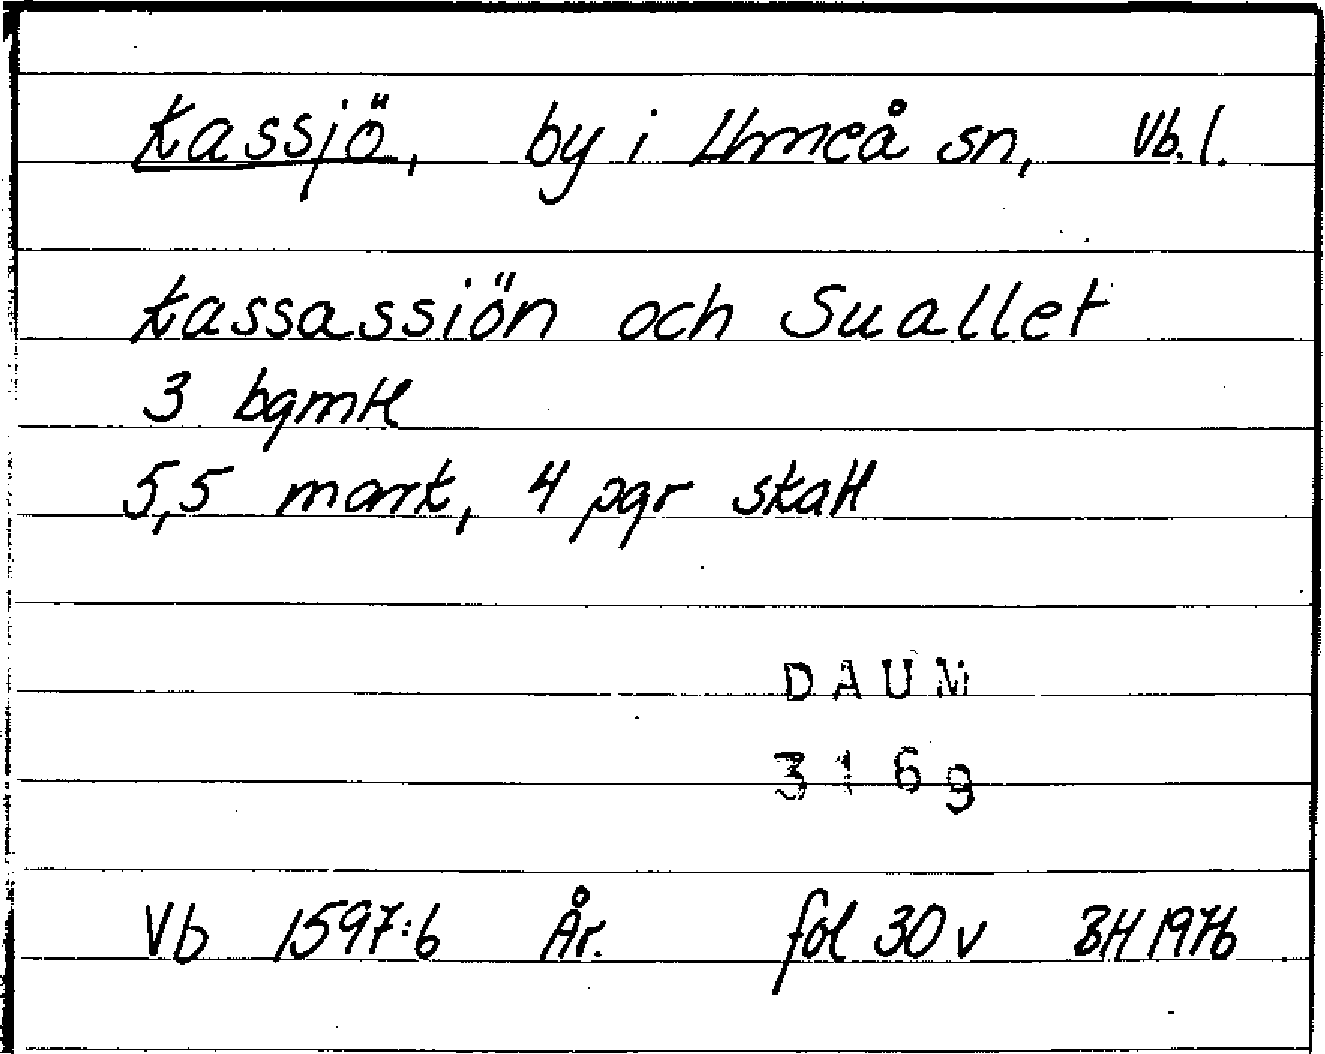 Kassjö, by i Umeå sn, Vb. l.
Kassassiön och Suallet
3 bgmtl
5,5 mark, 4 pgr skatt
DAUM
3169
Vb 1597:6 År. fol 30 v BH 1976